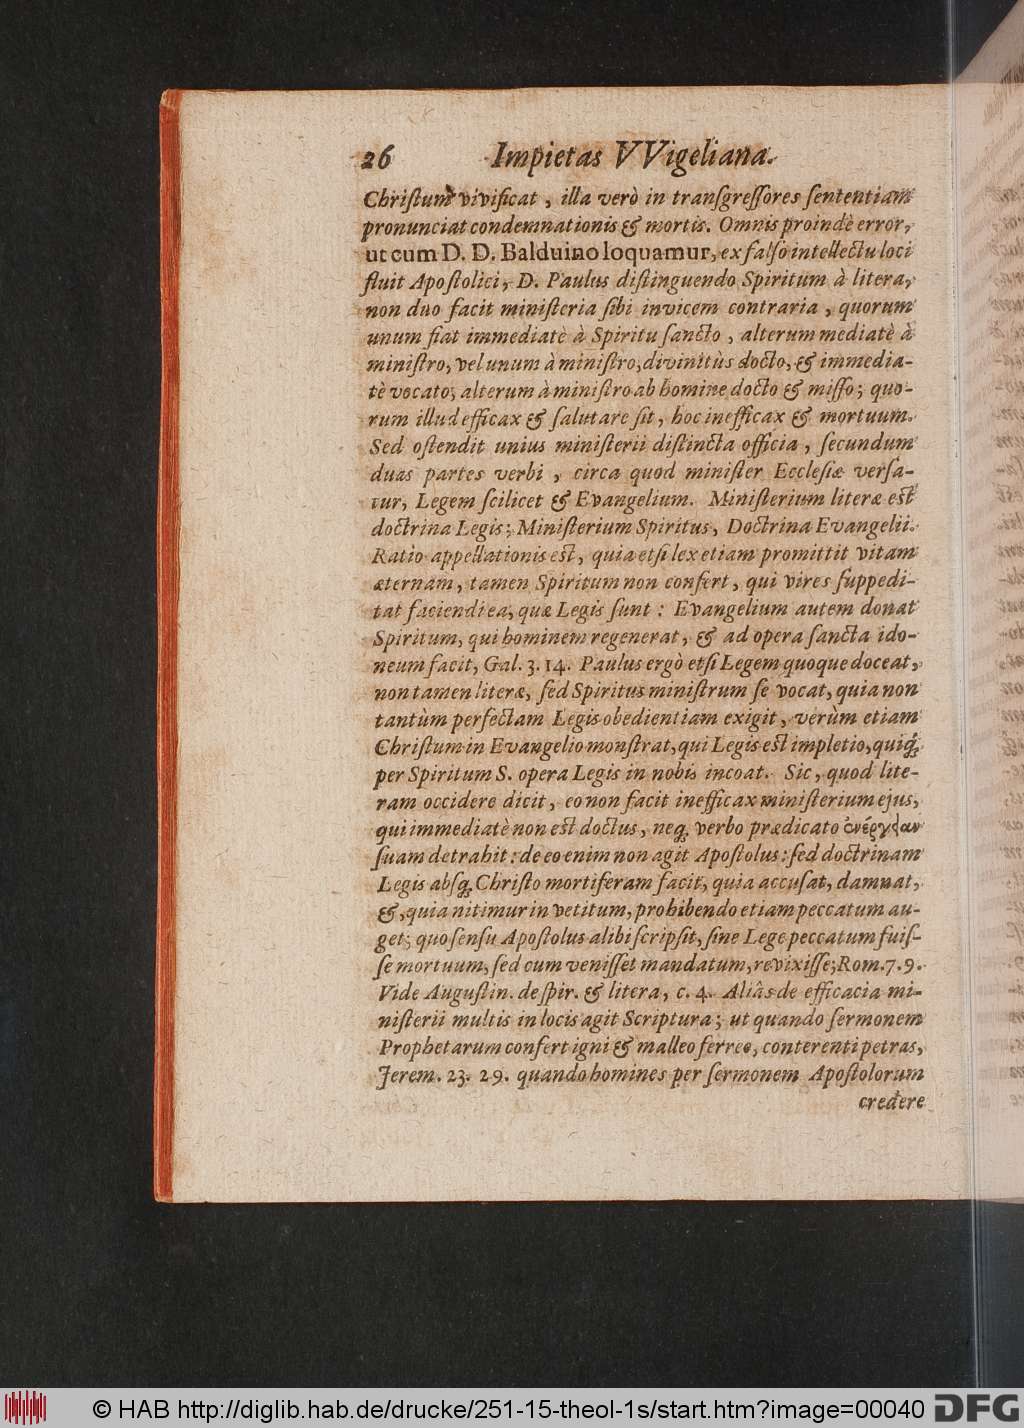 26 Impietas VVigeliana.
Chriſtum vivificat, illa verò in transgreſſores ſententiam
pronunciat condemnationis & mortis. Omnis proindè error,
ut cum D. D. Balduino loquamur, ex falſo intellectu loci
fluit Apoſtolici, D. Paulus diſtinguendo Spiritum à litera,
non duo facit miniſteria ſibi invicem contraria, quorum
unum fiat immediatè à Spiritu ſancto, alterum mediatè à
miniſtro, vel unum à miniſtro, divinitùs docto, & immedia-
tè vocato, alterum à miniſtro ab homine docto & miſſo; quo-
rum illud efficax & ſalutare ſit, hoc inefficax & mortuum.
Sed oſtendit unius miniſterii diſtincta officia, ſecundum
duas partes verbi, circa quod miniſter Eccleſiæ verſa-
tur, Legem ſcilicet & Evangelium. Miniſterium literæ eſt
doctrina Legis; Miniſterium Spiritus, Doctrina Evangelii.
Ratio appellationis eſt, quia etſi lex etiam promittit vitam
æternam, tamen Spiritum non confert, qui vires ſuppedi-
tat faciendi ea, quæ Legis ſunt: Evangelium autem donat
Spiritum, qui hominem regenerat, & ad opera ſancta ido-
neum facit, Gal. 3. 14. Paulus ergò etſi Legem quoque doceat,
non tamen literæ, ſed Spiritus miniſtrum ſe vocat, quia non
tantùm perfectam Legis obedientiam exigit, verùm etiam
Chriſtum in Evangelio monſtrat, qui Legis eſt impletio, quiq́;
per Spiritum S. opera Legis in nobis incoat. Sic, quod lite-
ram occidere dicit, eo non facit inefficax miniſterium ejus,
qui immediatè non eſt doctus, neq; verbo prædicato ἐνέργειαν
ſuam detrahit: de eo enim non agit Apoſtolus: ſed doctrinam
Legis abſq; Chriſto mortiferam facit, quia accuſat, damnat,
&, quia nitimur in vetitum, prohibendo etiam peccatum au-
get; quo ſenſu Apoſtolus alibi ſcripſit, ſine Lege peccatum fuiſ-
ſe mortuum, ſed cum veniſſet mandatum, revixiſſe; Rom. 7. 9.
Vide Auguſtin. de ſpir. & litera, c. 4. Aliâs de efficacia mi-
niſterii multis in locis agit Scriptura; ut quando ſermonem
Prophetarum confert igni & malleo ferreo, conterenti petras,
Jerem. 23. 29. quando homines per ſermonem Apoſtolorum
credere
© HAB http://diglib.hab.de/drucke/251-15-theol-1s/start.htm?image=00040 DFG